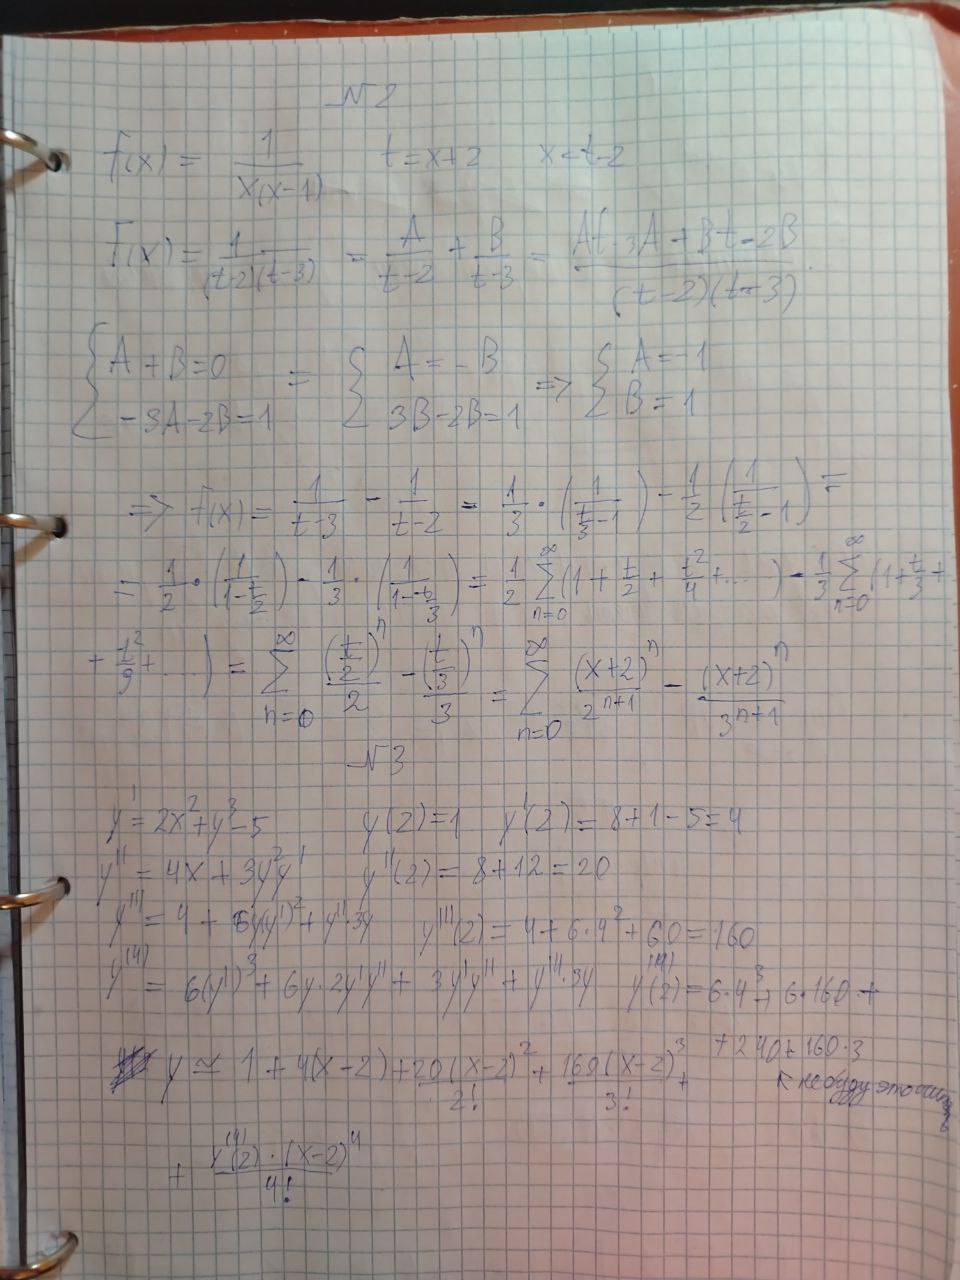 №2
f(x) = 1/(x(x-1)) t = x+2 x = t-2
f(x) = 1/((t-2)(t-3)) = A/(t-2) + B/(t-3) = (At-3A+Bt-2B)/((t-2)(t-3))
{A+B=0; -3A-2B=1 = {A=-B; 3B-2B=1 => {A=-1; B=1
=> f(x) = 1/(t-3) - 1/(t-2) = 1/3 · (1/(t/3 - 1)) - 1/2 (1/(t/2 - 1)) =
= 1/2 · (1/(1 - t/2)) - 1/3 · (1/(1 - t/3)) = 1/2 ∑_{n=0}^{∞} (1 + t/2 + t²/4 + ...) - 1/3 ∑_{n=0}^{∞} (1 + t/3 +
+ t²/9 + ...) = ∑_{n=0}^{∞} (t/2)ⁿ/2 - (t/3)ⁿ/3 = ∑_{n=0}^{∞} (x+2)ⁿ/2ⁿ⁺¹ - (x+2)ⁿ/3ⁿ⁺¹
№3
y' = 2x² + y³ - 5 y(2) = 1 y'(2) = 8+1-5 = 4
y'' = 4x + 3y²y' y''(2) = 8+12 = 20
y''' = 4 + 6y(y')² + y''·3y y'''(2) = 4+6·4²+60 = 160
y⁽⁴⁾ = 6(y')³ + 6y·2y'y'' + 3y'y'' + y'''·3y y⁽⁴⁾(2) = 6·4³ + 6·160 +
+ 240 + 160·3
y ≈ 1 + 4(x-2) + 20(x-2)²/2! + 160(x-2)³/3! +
не буду это
+ y⁽⁴⁾(2)·(x-2)⁴/4!